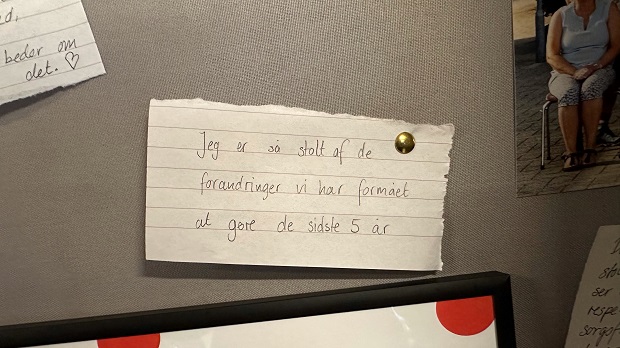 beder om
det. ♡
Jeg er så stolt af de
forandringer vi har formået
at gøre de sidste 5 år
ser